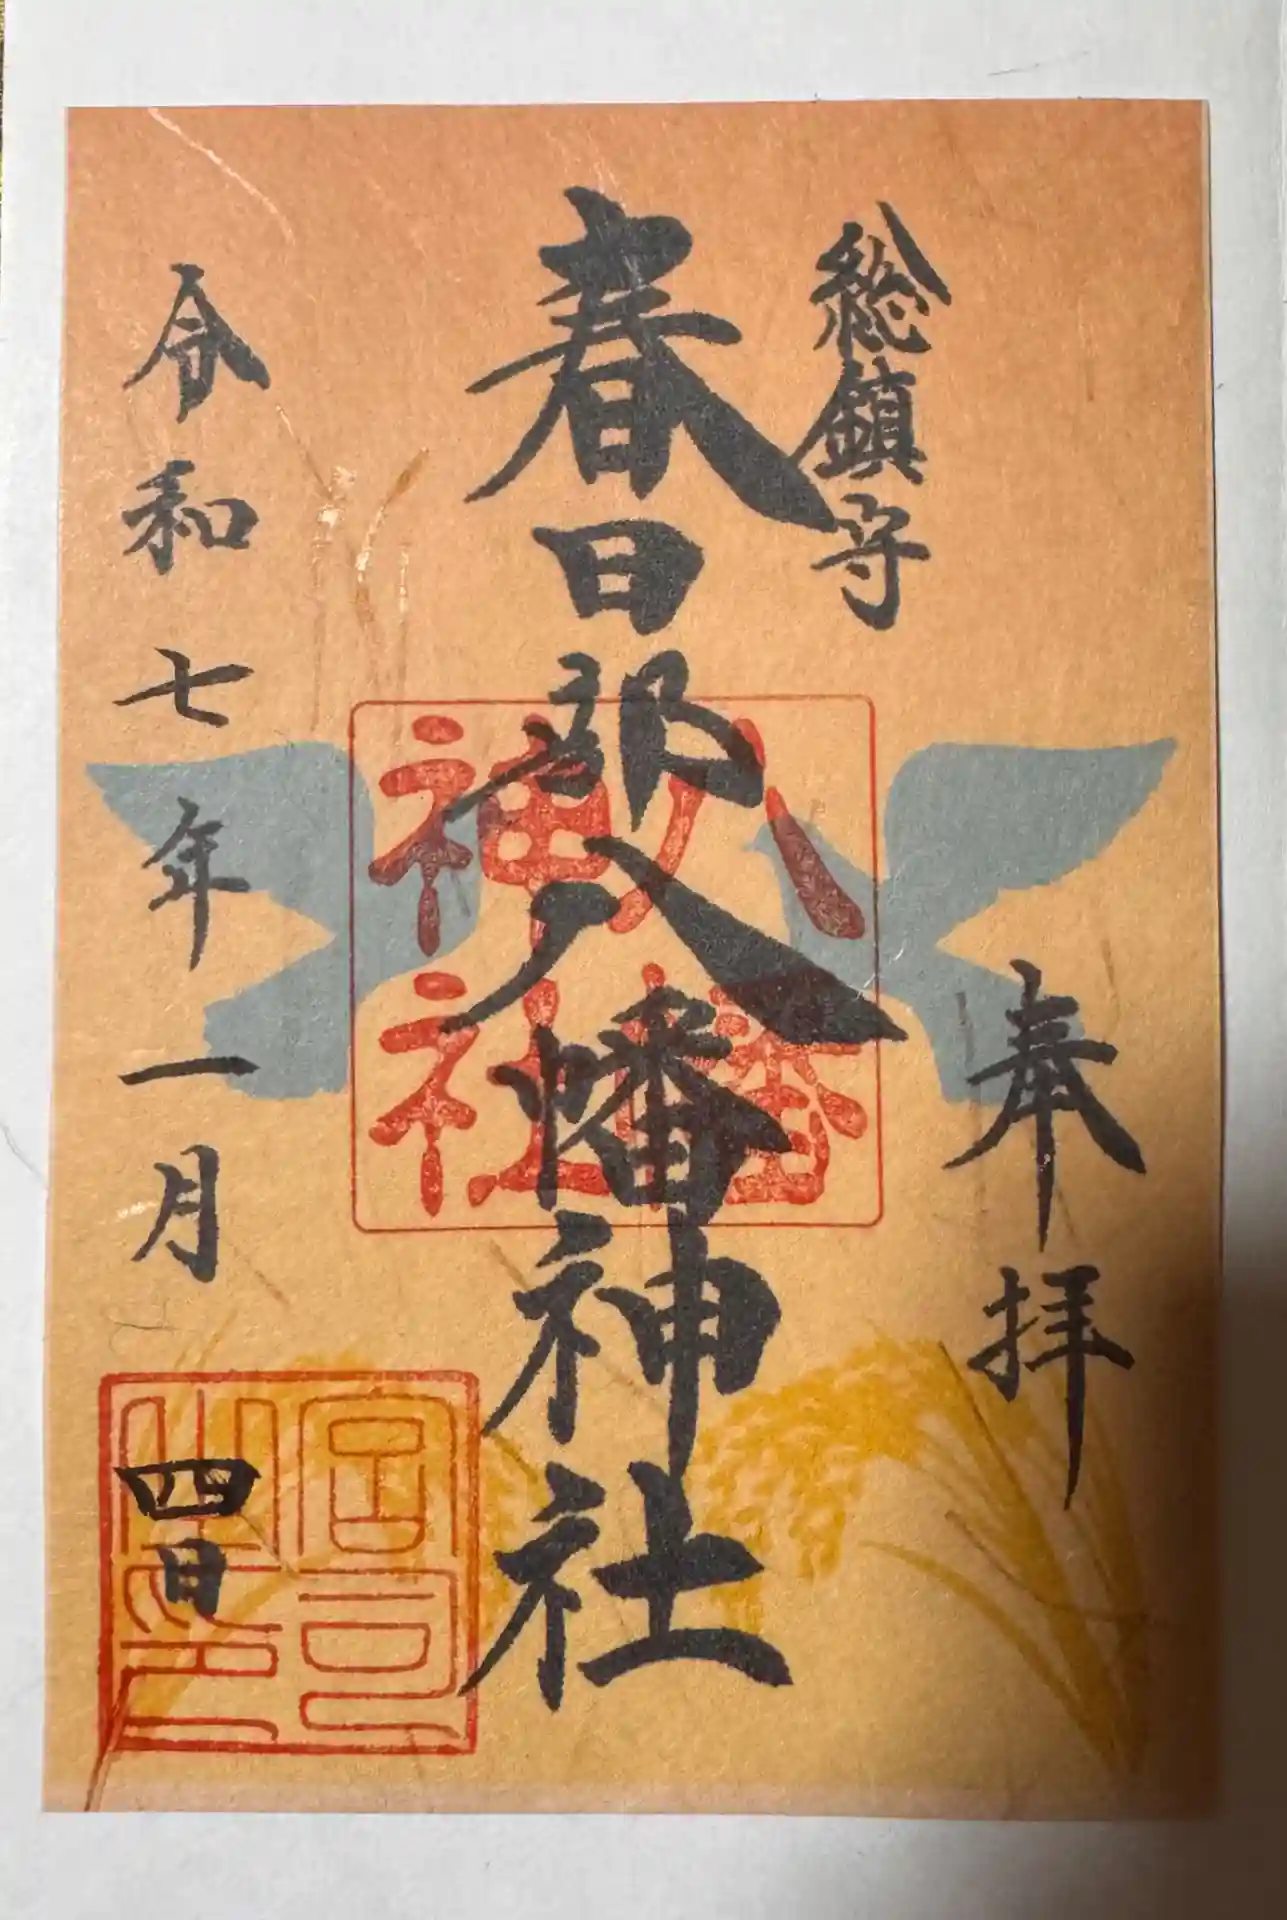 総鎮守
奉拝
春日部八幡神社
八幡
神社
令和七年一月
四日
宮司
之印